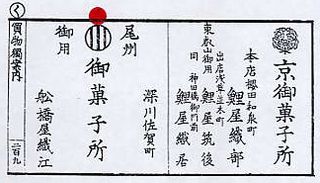 京御菓子所
本店櫻田和泉町
鯉屋織部
出店浅草並木町
東叡山御用
鯉屋筑後
同 神田橋御門前
鯉屋織居
深川佐賀町
御菓子所
尾州
御用
船橋屋織江
く
買物獨案内
二百九